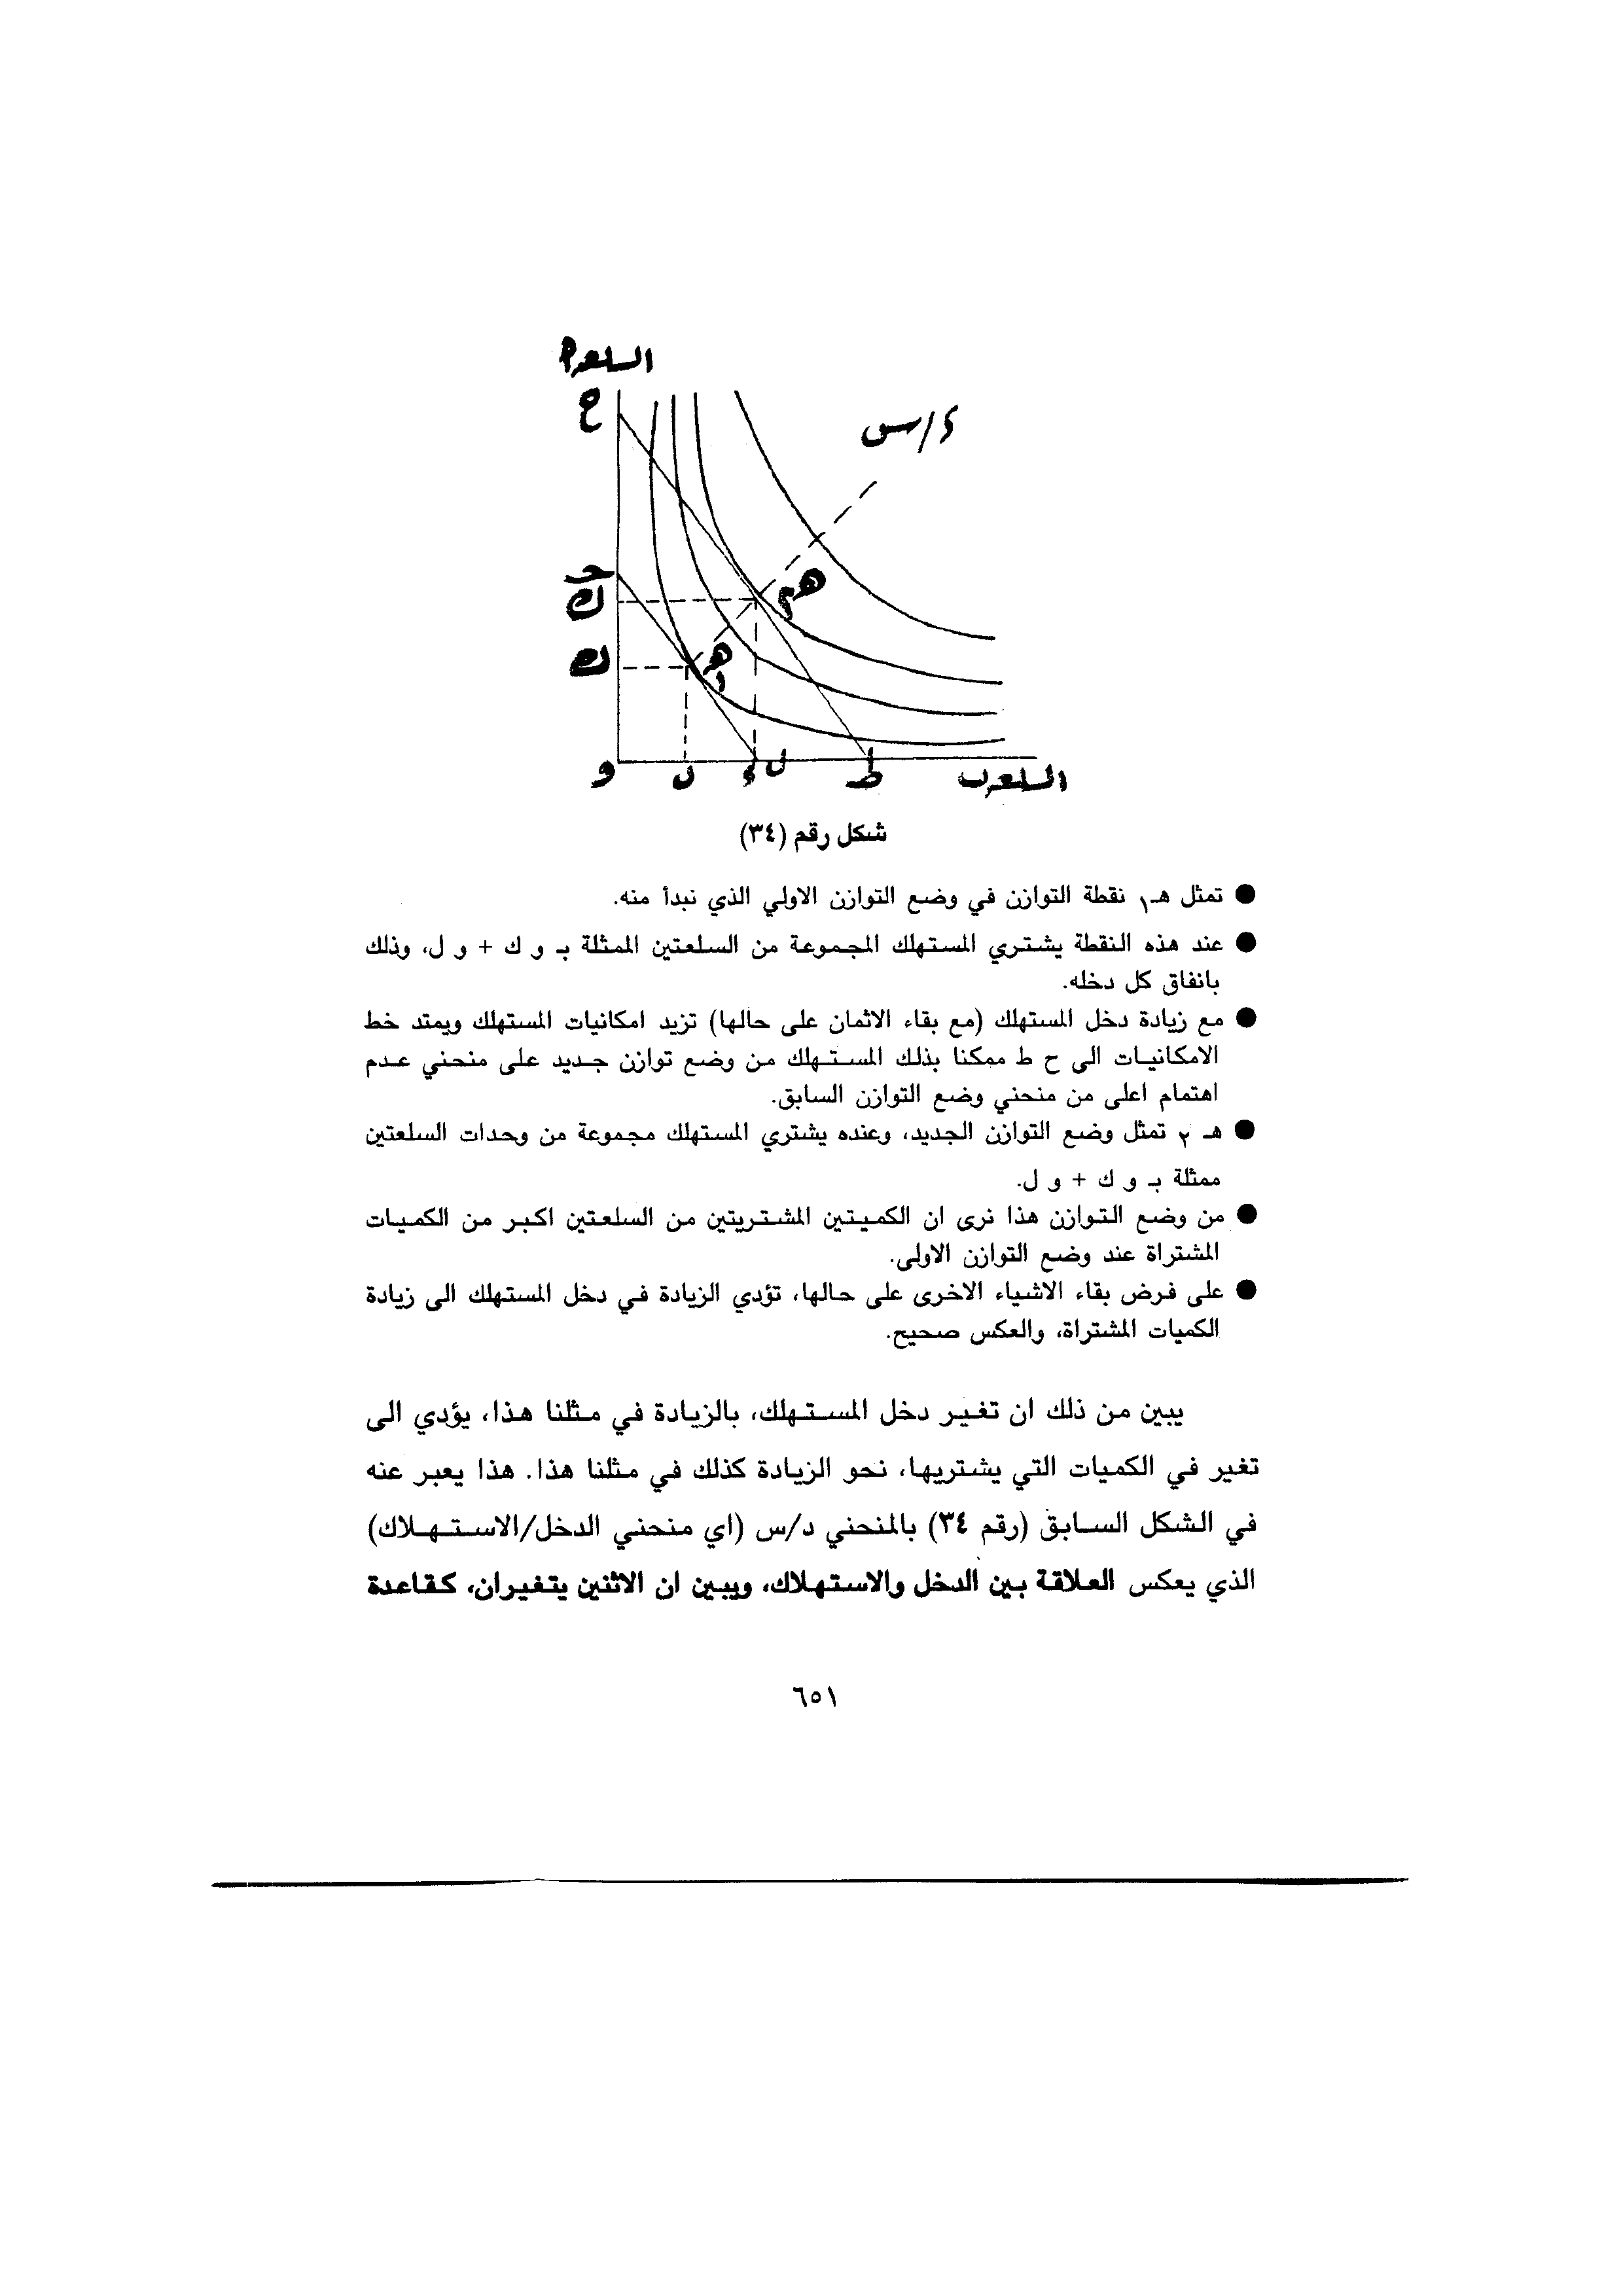 السلعة أ
ح
د/س
جـ
كَ
هـ٢
ك
هـ١
و
ل
د
لَ
ط
السلعة ب
شكل رقم (٣٤)
● تمثل هـ١ نقطة التوازن في وضع التوازن الاولي الذي نبدأ منه.
● عند هذه النقطة يشتري المستهلك المجموعة من السلعتين الممثلة بـ و ك + و ل، وذلك
بانفاق كل دخله.
● مع زيادة دخل المستهلك (مع بقاء الاثمان على حالها) تزيد امكانيات المستهلك ويمتد خط
الامكانيات الى ح ط ممكنا بذلك المستهلك من وضع توازن جديد على منحني عدم
اهتمام اعلى من منحني وضع التوازن السابق.
● هـ ٢ تمثل وضع التوازن الجديد، وعنده يشتري المستهلك مجموعة من وحدات السلعتين
ممثلة بـ و ك + و ل.
● من وضع التوازن هذا نرى ان الكميتين المشتريتين من السلعتين اكبر من الكميات
المشتراة عند وضع التوازن الاولى.
● على فرض بقاء الاشياء الاخرى على حالها، تؤدي الزيادة في دخل المستهلك الى زيادة
الكميات المشتراة، والعكس صحيح.
يبين من ذلك ان تغير دخل المستهلك، بالزيادة في مثلنا هذا، يؤدي الى
تغير في الكميات التي يشتريها، نحو الزيادة كذلك في مثلنا هذا. هذا يعبر عنه
في الشكل السابق (رقم ٣٤) بالمنحني د/س (اي منحني الدخل/الاستهلاك)
الذي يعكس العلاقة بين الدخل والاستهلاك، ويبين ان الاثنين يتغيران، كقاعدة
٦٥١